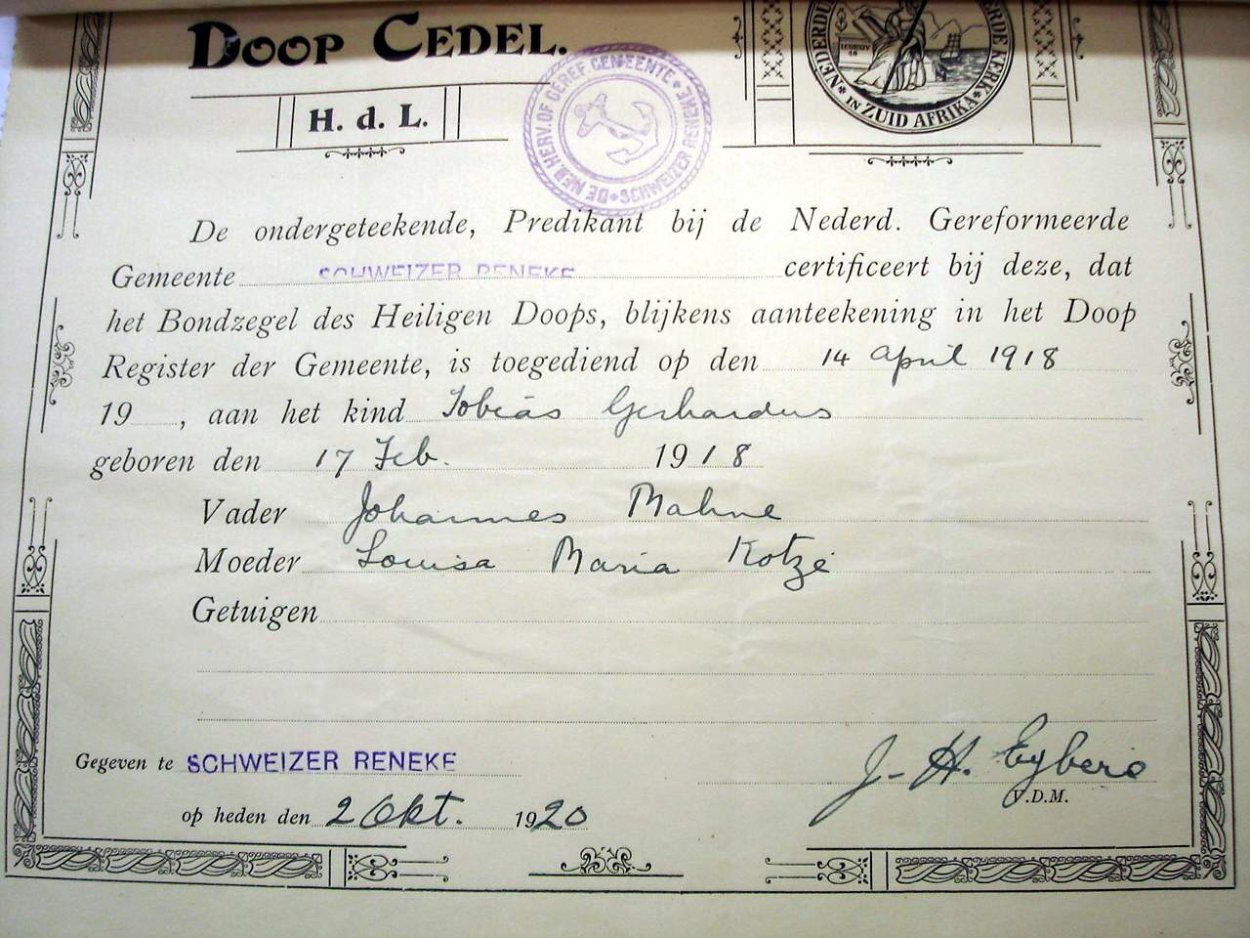 DOOP CEDEL.
H. d. L.
DE NED. HERV. OF GEREF. GEMEENTE • SCHWEIZER RENEKE
IN ZUID AFRIKA
De ondergeteekende, Predikant bij de Nederd. Gereformeerde
Gemeente SCHWEIZER RENEKE certificeert bij deze, dat
het Bondzegel des Heiligen Doops, blijkens aanteekening in het Doop
Register der Gemeente, is toegediend op den 14 april 1918
19 , aan het kind Tobias Gerhardus
geboren den 17 Feb. 1918
Vader Johannes Mahne
Moeder Louisa Maria Kotzé
Getuigen
Gegeven te SCHWEIZER RENEKE
J. H. Eybers
V.D.M.
op heden den 2 Okt. 1920